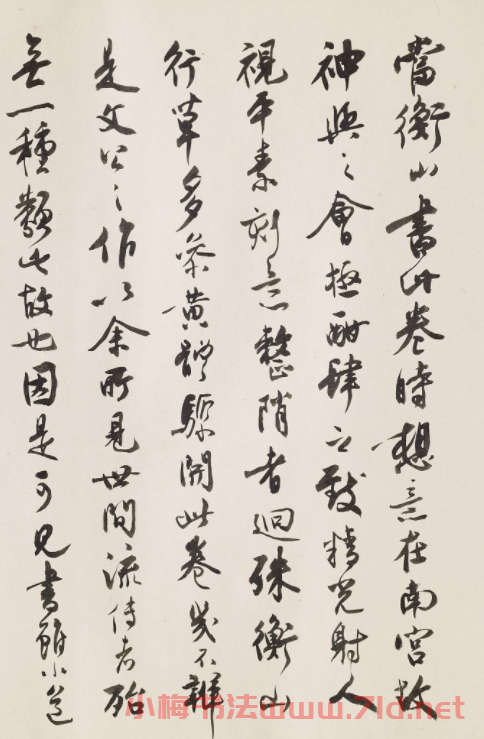 當衡山書此卷時想意在南宮故
神與之會極酣肆之致精光射人
視平素刻意整陗者迥殊衡山
行草多參黃體驟開此卷幾不辨
是文公之作以余所見世間流傳者殆
無一種類此故也因是可見書雖小道
小梅书法www.7ld.net